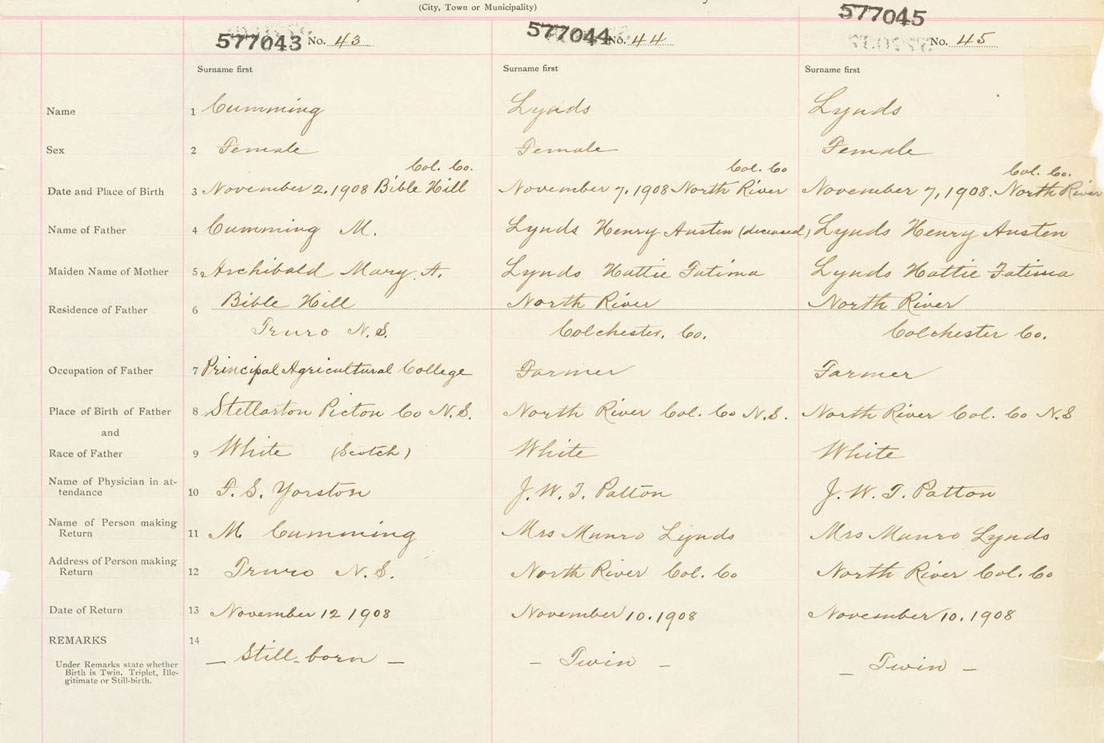 (City, Town or Municipality)
577043 No. 43 577044 No. 44 577045 No. 45
Surname first Surname first Surname first
Name 1 Cumming Lynds Lynds
Sex 2 Female Female Female
Col. Co. Col. Co Col. Co.
Date and Place of Birth 3 November 2, 1908 Bible Hill November 7, 1908 North River November 7, 1908. North River
Name of Father 4 Cumming M. Lynds Henry Austen (deceased) Lynds Henry Austen
Maiden Name of Mother 5 Archibald Mary A. Lynds Hattie Fatima Lynds Hattie Fatima
Residence of Father 6 Bible Hill North River North River
Truro N.S. Colchester. Co. Colchester Co.
Occupation of Father 7 Principal Agricultural College Farmer Farmer
Place of Birth of Father 8 Stellarton Picton Co N.S. North River Col. Co N.S. North River Col. Co N.S
and
Race of Father 9 White (Scotch) White White
Name of Physician in at-
tendance 10 F. S. Yorston J. W. T. Patton J. W. T. Patton
Name of Person making
Return 11 M Cumming Mrs Munro Lynds Mrs Munro Lynds
Address of Person making
Return 12 Truro N.S. North River Col. Co North River Col. Co
Date of Return 13 November 12 1908 November 10. 1908 November 10. 1908
REMARKS 14
Under Remarks state whether
Birth is Twin, Triplet, Ille-
gitimate or Still-birth.
– Still-born – – Twin – – Twin –